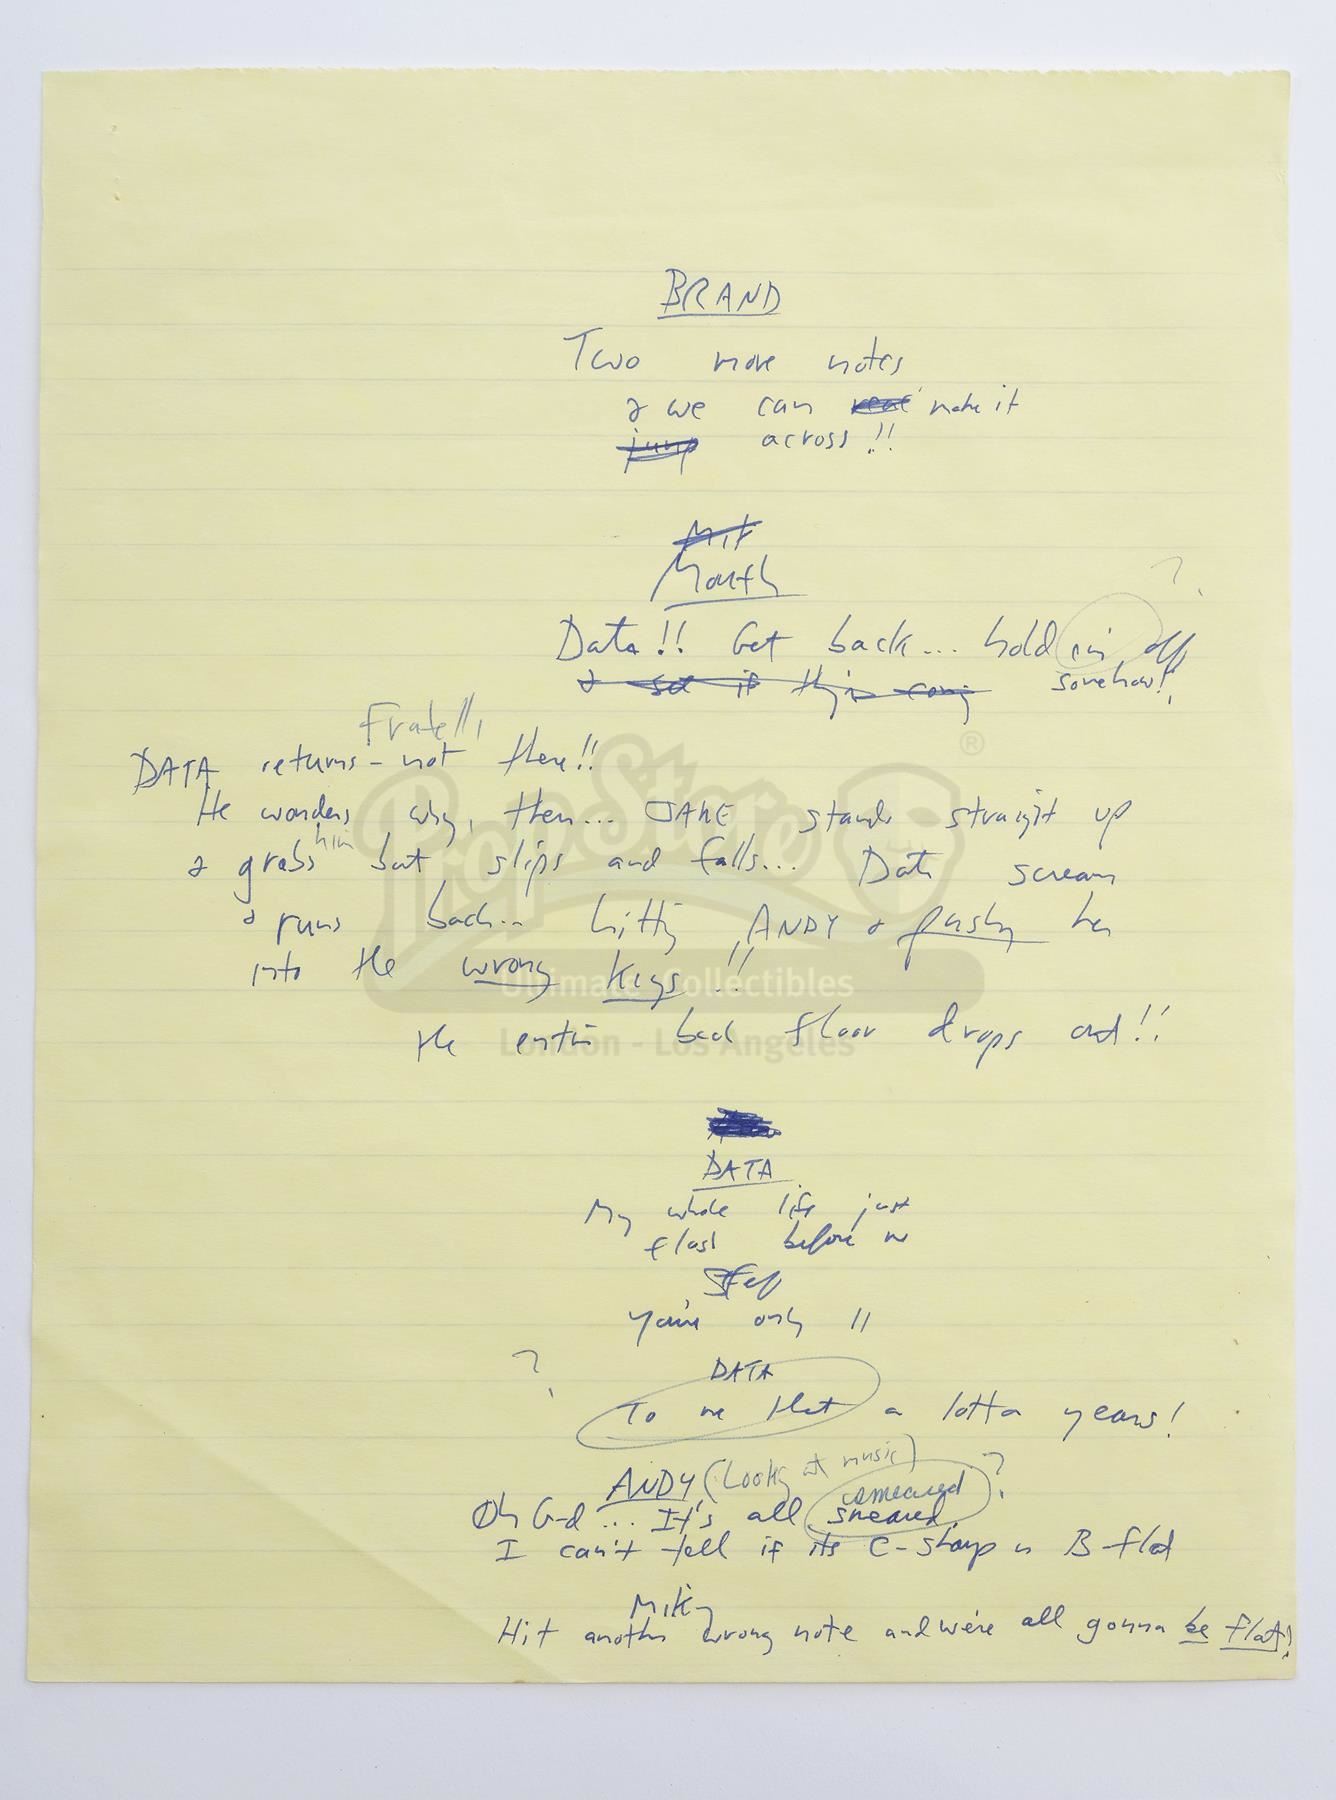 BRAND
Two more notes
& we can make it
jump across!!
Mik
Mouth
Data!! Get back... hold 'em off
& see if somehow!,
?
Fratelli
DATA returns - not there!!
He wonders why, then... JAKE stands straight up
him
& grabs but slips and falls... Data screams
& runs back... hitting ANDY & pushing her
into the wrong keys!!
The entire back floor drops out!!
DATA
My whole life just
flash before me
Stef
You're only 11
?
DATA
To me that a lotta years!
ANDY (Looks at music) ?
smeared
Oh G-d... It's all smeared
I can't tell if its C-sharp or B-flat
Mikey
Hit another wrong note and we're all gonna be flat!
PropStore ®
Ultimate Collectibles
London - Los Angeles